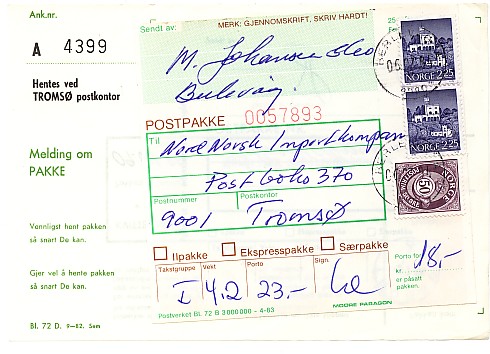 Ank.nr.
A 4399
Hentes ved
TROMSØ postkontor
Melding om
PAKKE
Vennligst hent pakken
så snart De kan.
Gjer vel å hente pakken
så snart De kan.
Bl. 72 D. 9-82. Sem
MERK: GJENNOMSKRIFT, SKRIV HARDT!
Sendt av:
M. Johansen
POSTPAKKE 0057893
Til
Nord Norsk Importkompani
Postboks 370
Postnummer Postkontor
9001 Tromsø
Ilpakke Ekspresspakke Særpakke
Takstgruppe Vekt Porto Sign.
I 4,2 23.-
Porto for
kr. 18,-
er påsatt
pakken.
Postverket Bl. 72 B 3 000 000 - 4-83
MOORE PARAGON
25
NORGE 2.25
NORGE 2.25
50
NORGE